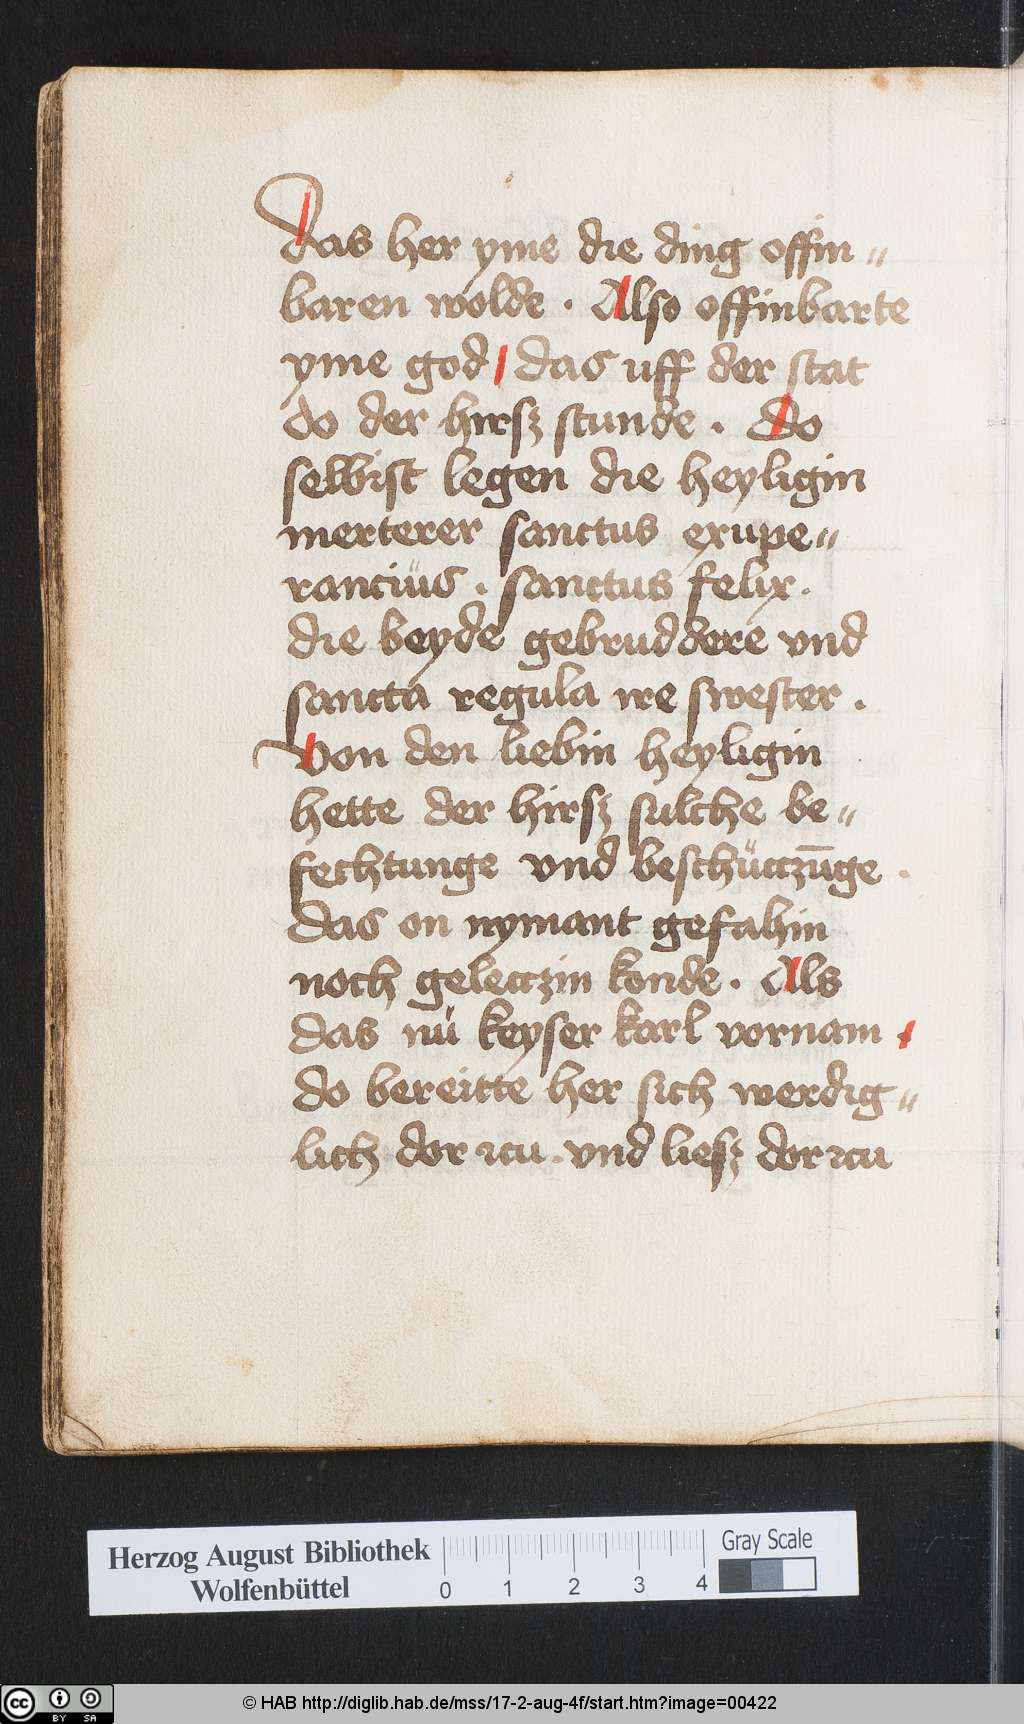 Das her yme die ding offin〃
baren wolde . Also offinbarte
yme god | das uff der stat
do der hirsz stunde . Do
selbist legen die heyligin
merterer sanctus exupe〃
rancius . sanctus felix .
die beyde gebruddere vnd
sancta regula ire swester .
Von den liebin heyligin
hette der hirsz sulche be〃
fechtunge vnd beschüttzūge .
das on nymant gefahin
noch geleczin konde . Als
das nú keyser karl vornam
do bereitte her sich werdig〃
lich dor zcu . vnd liesz dor zcu
Herzog August Bibliothek
Wolfenbüttel
0 1 2 3 4
Gray Scale
cc BY SA
© HAB http://diglib.hab.de/mss/17-2-aug-4f/start.htm?image=00422